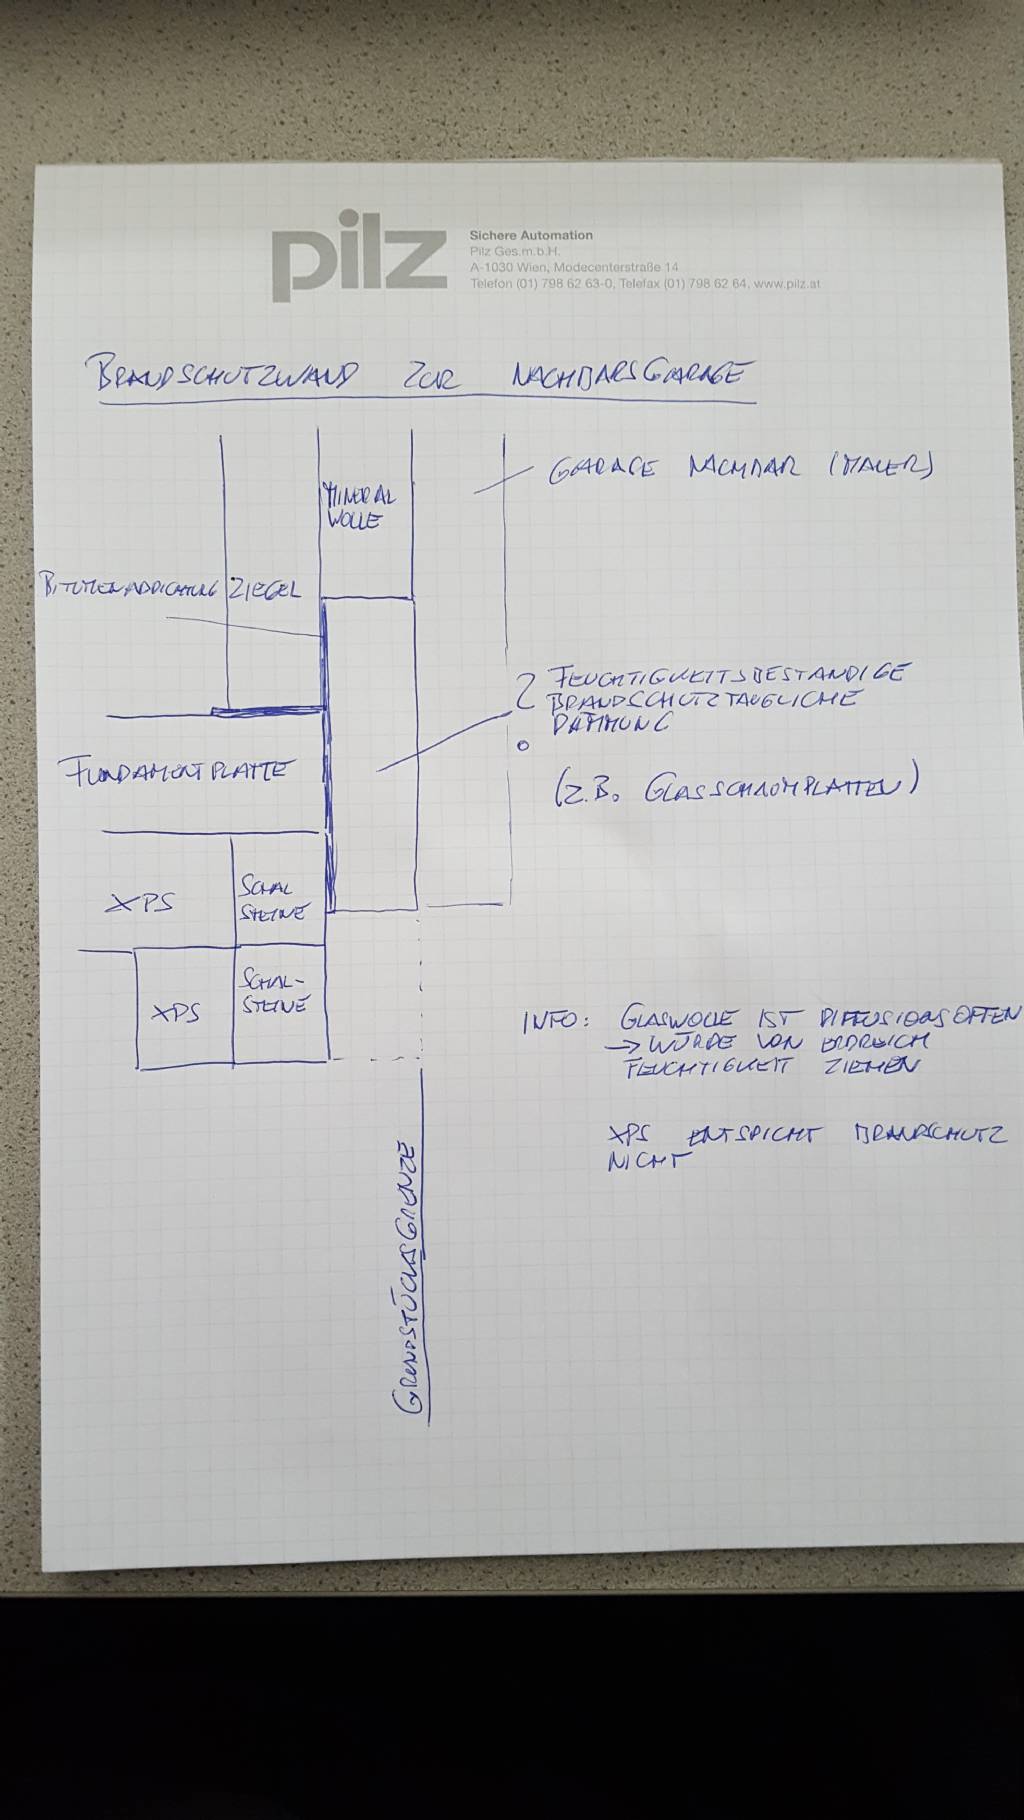 pilz
Sichere Automation
Pilz Ges.m.b.H.
A-1030 Wien, Modecenterstraße 14
Telefon (01) 798 62 63-0, Telefax (01) 798 62 64, www.pilz.at
BRANDSCHUTZWAND ZUR NACHBARSGARAGE
GARAGE NACHBAR (MALER)
MINERAL
WOLLE
BITUMENABDICHTUNG
ZIEGEL
? FEUCHTIGKEITSBESTÄNDIGE
BRANDSCHUTZTAUGLICHE
DÄMMUNG
(Z.B. GLASSCHAUMPLATTEN)
FUNDAMENTPLATTE
XPS
SCHAL
STEINE
XPS
SCHAL-
STEINE
INFO: GLASWOLLE IST DIFFUSIONSOFFEN
→ WÜRDE VON ERDREICH
FEUCHTIGKEIT ZIEHEN
XPS ENTSPICHT BRANDSCHUTZ
NICHT
GRUNDSTÜCKSGRENZE